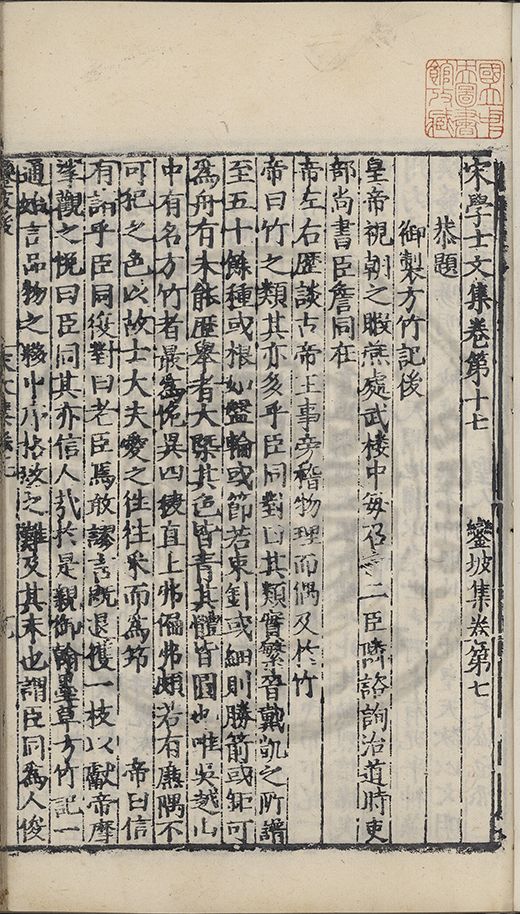 國立中
央圖書
館收藏
宋學士文集卷第十七　鑾坡集卷第七
恭題
御製方竹記後
皇帝視朝之暇燕處武樓中每召二臣隣諮詢治道時吏
部尚書臣詹同在
帝左右歷談古帝王事旁稽物理而偶及於竹
帝曰竹之類其亦多乎臣同對曰其類寔繁晉戴凱之所譜
至五十餘種或根如盤輪或節若束釧或細則勝箭或鉅可
為舟有未能歷舉者大槩其色皆青其體皆圓也唯吳越山
中有名方竹者最為佹異四稜直上弗偏弗頗若有廉隅不
可犯之色以故士大夫愛之徃徃采而為笻　帝曰信
有諸乎臣同復對曰老臣焉敢謬言既退獲一枝以獻帝摩
挲觀之悅曰臣同其亦信人㢤於是親御翰墨草方竹記一
通始言品物之夥中之難及其末也謂臣同為人俊